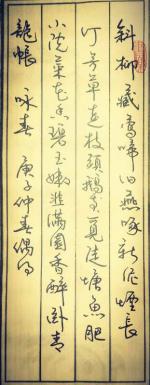 斜柳藏鶯啼旧燕啄新泥煙長
汀芳草連枝頭鵝覓塘魚肥
小院菜花香碧玉嫩韭滿園香醉卧青
龍帳 咏春 庚子仲春偶得